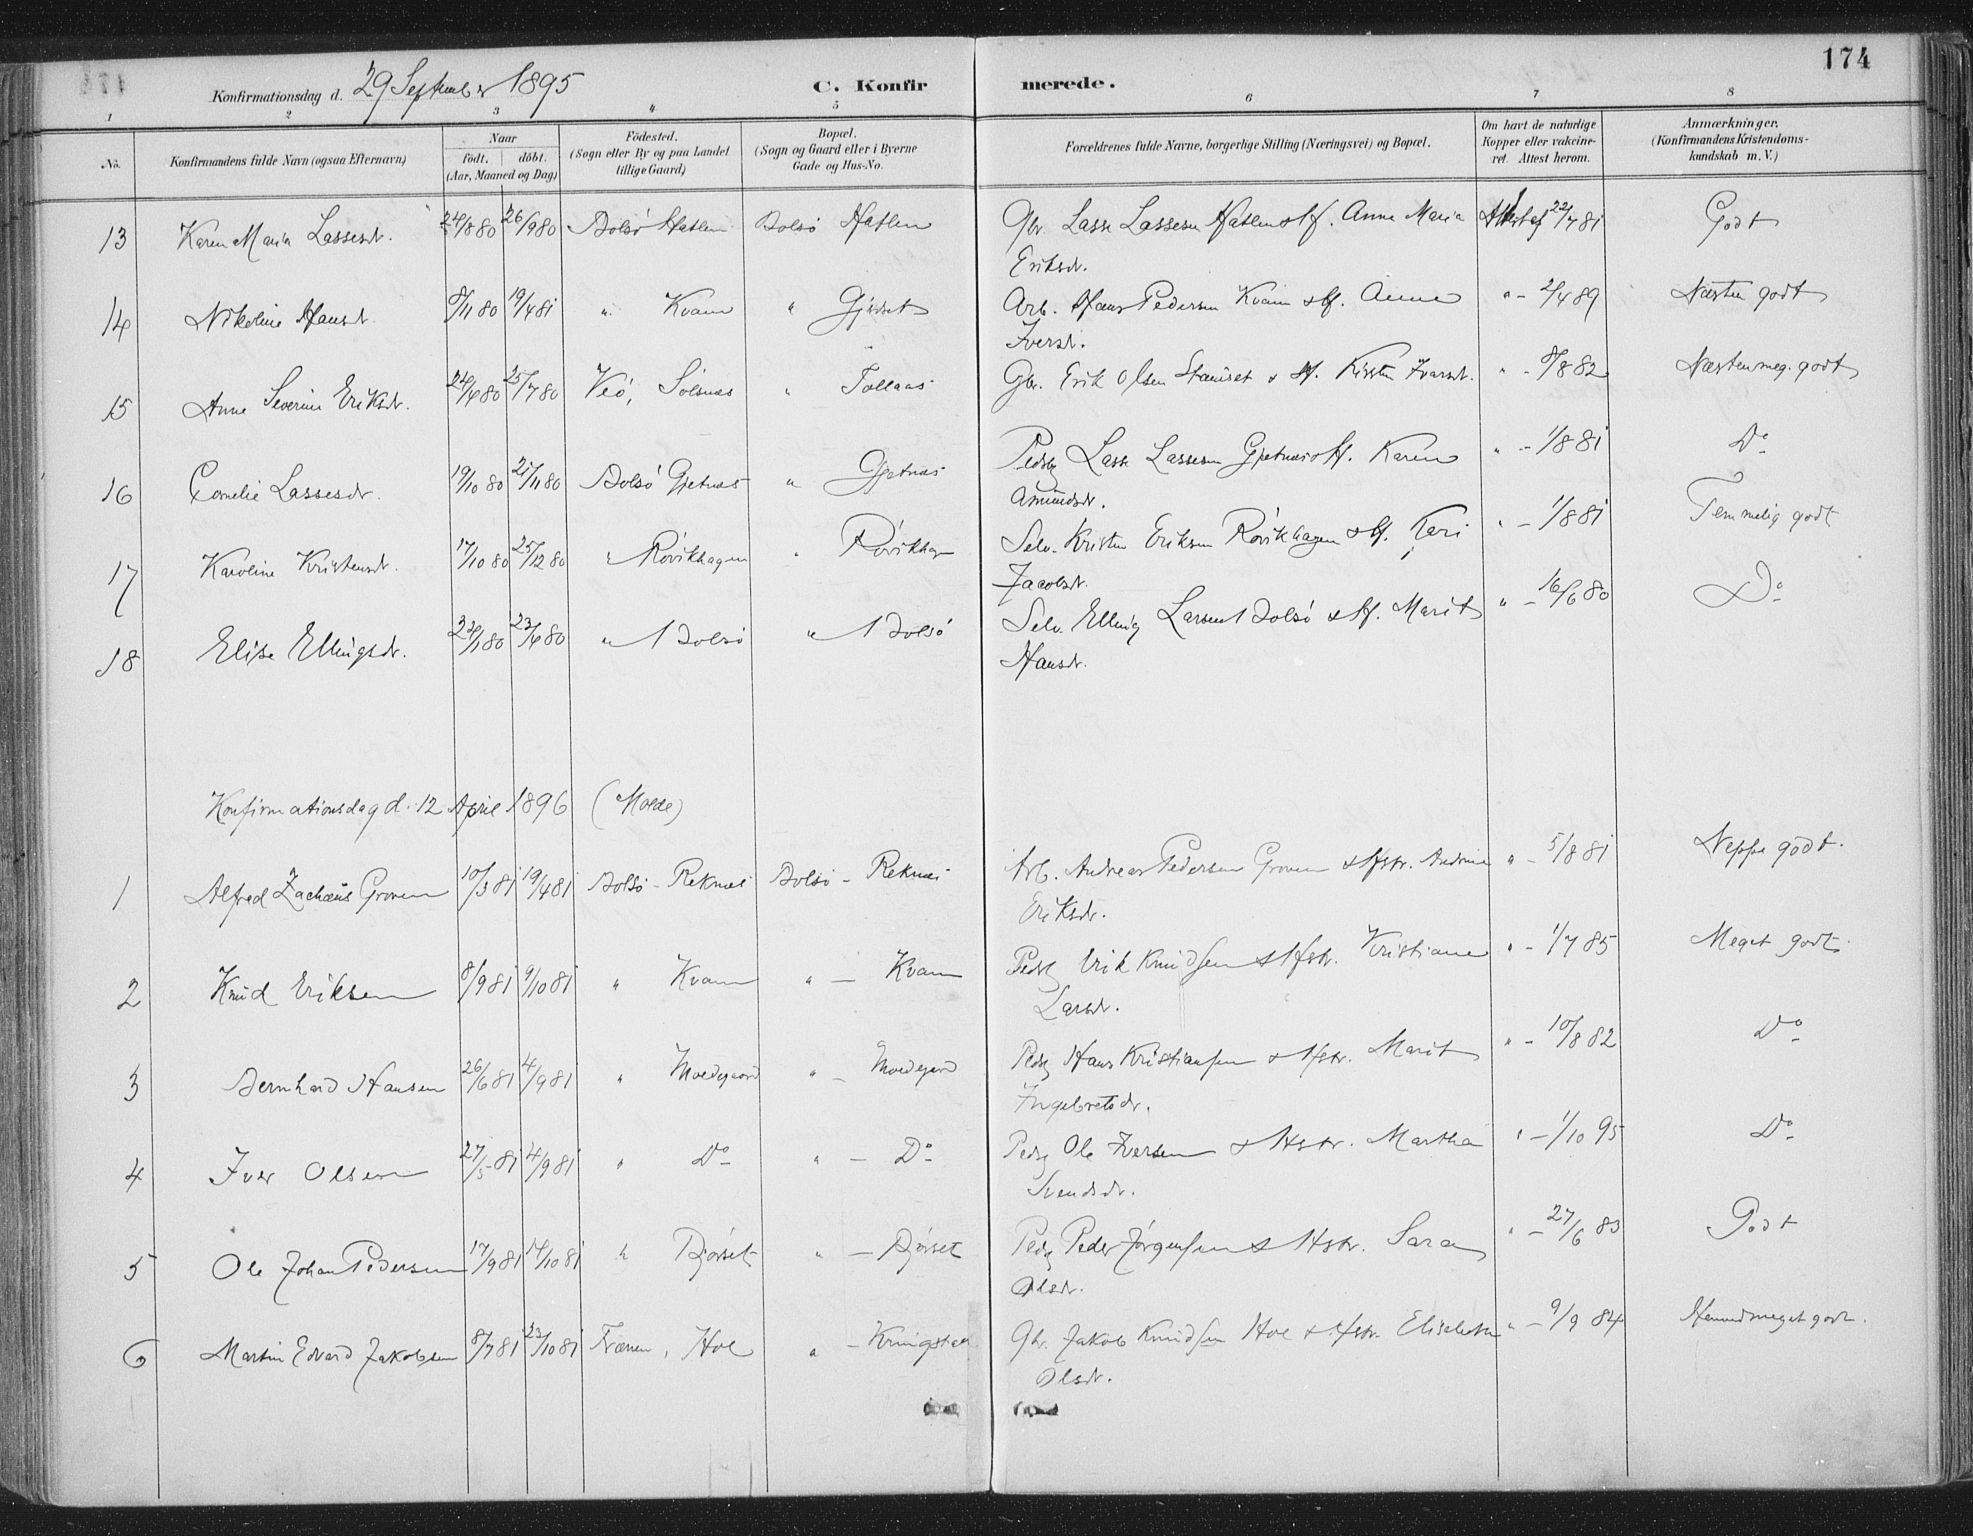 174
Konfirmationsdag d. 29 September 1895
C. Konfirmerede.
1 2 3 4 5 6 7 8
No.
Konfirmandens fulde Navn (ogsaa Efternavn)
Naar
födt. döbt.
(Aar, Maaned og Dag)
Födested.
(Sogn eller By og paa Landet
tillige Gaard)
Bopæl.
(Sogn og Gaard eller i Byerne
Gade og Hus-No.
Forældrenes fulde Navne, borgerlige Stilling (Næringsvei) og Bopæl.
Om havt de naturlige
Kopper eller vakcine-
ret. Attest herom.
Anmærkninger.
(Konfirmandens Kristendoms-
kundskab m. V.)
13 Karen Maria Lassesdr. 24/8 80 26/9 80 Bolsö Hatlen Bolsö Hatlen Gbr. Lasse Lassesen Hatlen & H. Anne Maria 22/7 81 Godt
Eriksdr.
14 Nikoline Hansdr. 8/11 80 19/4 81 " Kvam " Arb. Hans Pedersen Kvam & H. Anne " - 2/4 89 Næsten godt
Iversdr.
15 Anne Severine Eriksdr. 24/6 80 25/7 80 Veö, Sölsnæs " Tollaas Gbr. Erik Olsen & H. Kirsten Ivarsdr. " - 8/8 82 Næsten meg. godt
16 Cornelie Lassesdr. 19/10 80 21/11 80 Bolsö Gjetnæs " Gjetnæs Pedsg Lasse Lassesen Gjetnæs & H. Karen " - 1/8 81 Do
Amundsdr.
17 Karoline Kristensdr. 17/10 80 25/12 80 " Rövikhagen " Rövikhagen Selv. Kristen Eriksen Rövikhagen & H. Kari " - 1/8 81 Temmelig godt
Jacobsdr.
18 Elise Ellingsdr. 22/1 80 23/6 80 " Bolsö " Bolsö Selv. Elling Larsen Bolsö & H. Marit " - 16/6 80 Do
Hansdr.
Konfirmationsdag d. 12 April 1896 (Molde)
1 Alfred Zachæus Groven 10/3 81 19/4 81 Bolsö - Reknæs Bolsö - Reknæs Arb. Andreas Pedersen Groven & Hstr. Andrine " - 5/8 81 Neppe godt.
Eriksdr.
2 Knud Eriksen 8/9 81 9/10 81 " Kvam " - Kvam Pedsg Erik Knudsen & Hstr. Kristiane " - 1/7 85 Meget godt.
Larsdr.
3 Bernhard Hansen 26/6 81 4/9 81 " Moldegaard " - Moldegaard Pedsg Hans Kristiansen & Hstr. Marit " - 10/8 82 Do
Ingebretsdr.
4 Iver Olsen 27/5 81 4/9 81 " Do " - Do Pedsg Ole Iversen & Hstr. Martha " - 1/10 95 Do
Svendsdr.
5 Ole Johan Pedersen 17/9 81 14/10 81 " Bjørset " - Bjørset Pedsg Peder Jørgensen & Hstr. Sara " - 27/6 83 Godt
Olsdr.
6 Martin Edvard Jakobsen 8/7 81 23/10 81 Frænen, Hol " - Kringstad Gbr. Jakob Knudsen Hol & Hstr. Elisabeth " - 9/9 84 Henimod meget godt.
Olsdr.